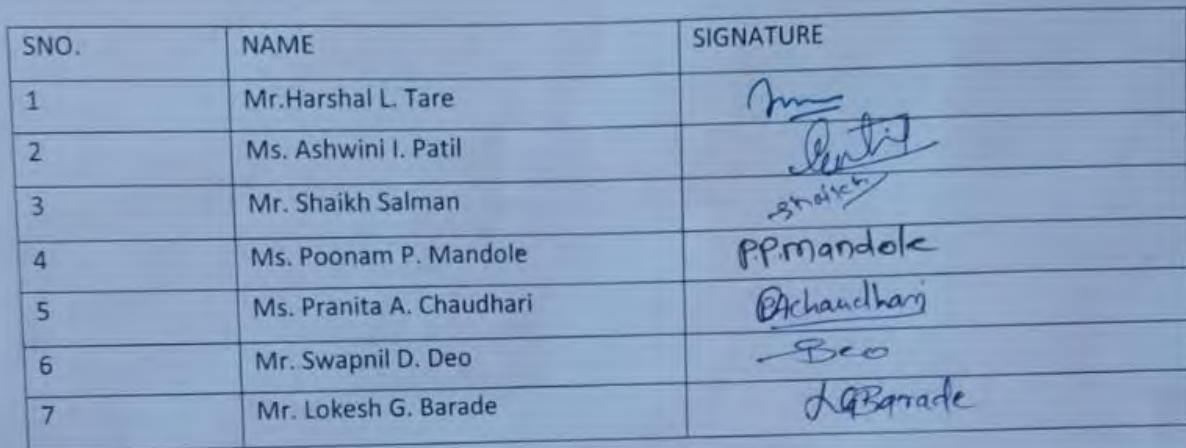 SNO. NAME SIGNATURE
1 Mr.Harshal L. Tare
2 Ms. Ashwini I. Patil
3 Mr. Shaikh Salman Shaikh
4 Ms. Poonam P. Mandole P.P.Mandole
5 Ms. Pranita A. Chaudhari PAchaudhari
6 Mr. Swapnil D. Deo Deo
7 Mr. Lokesh G. Barade LGBarade